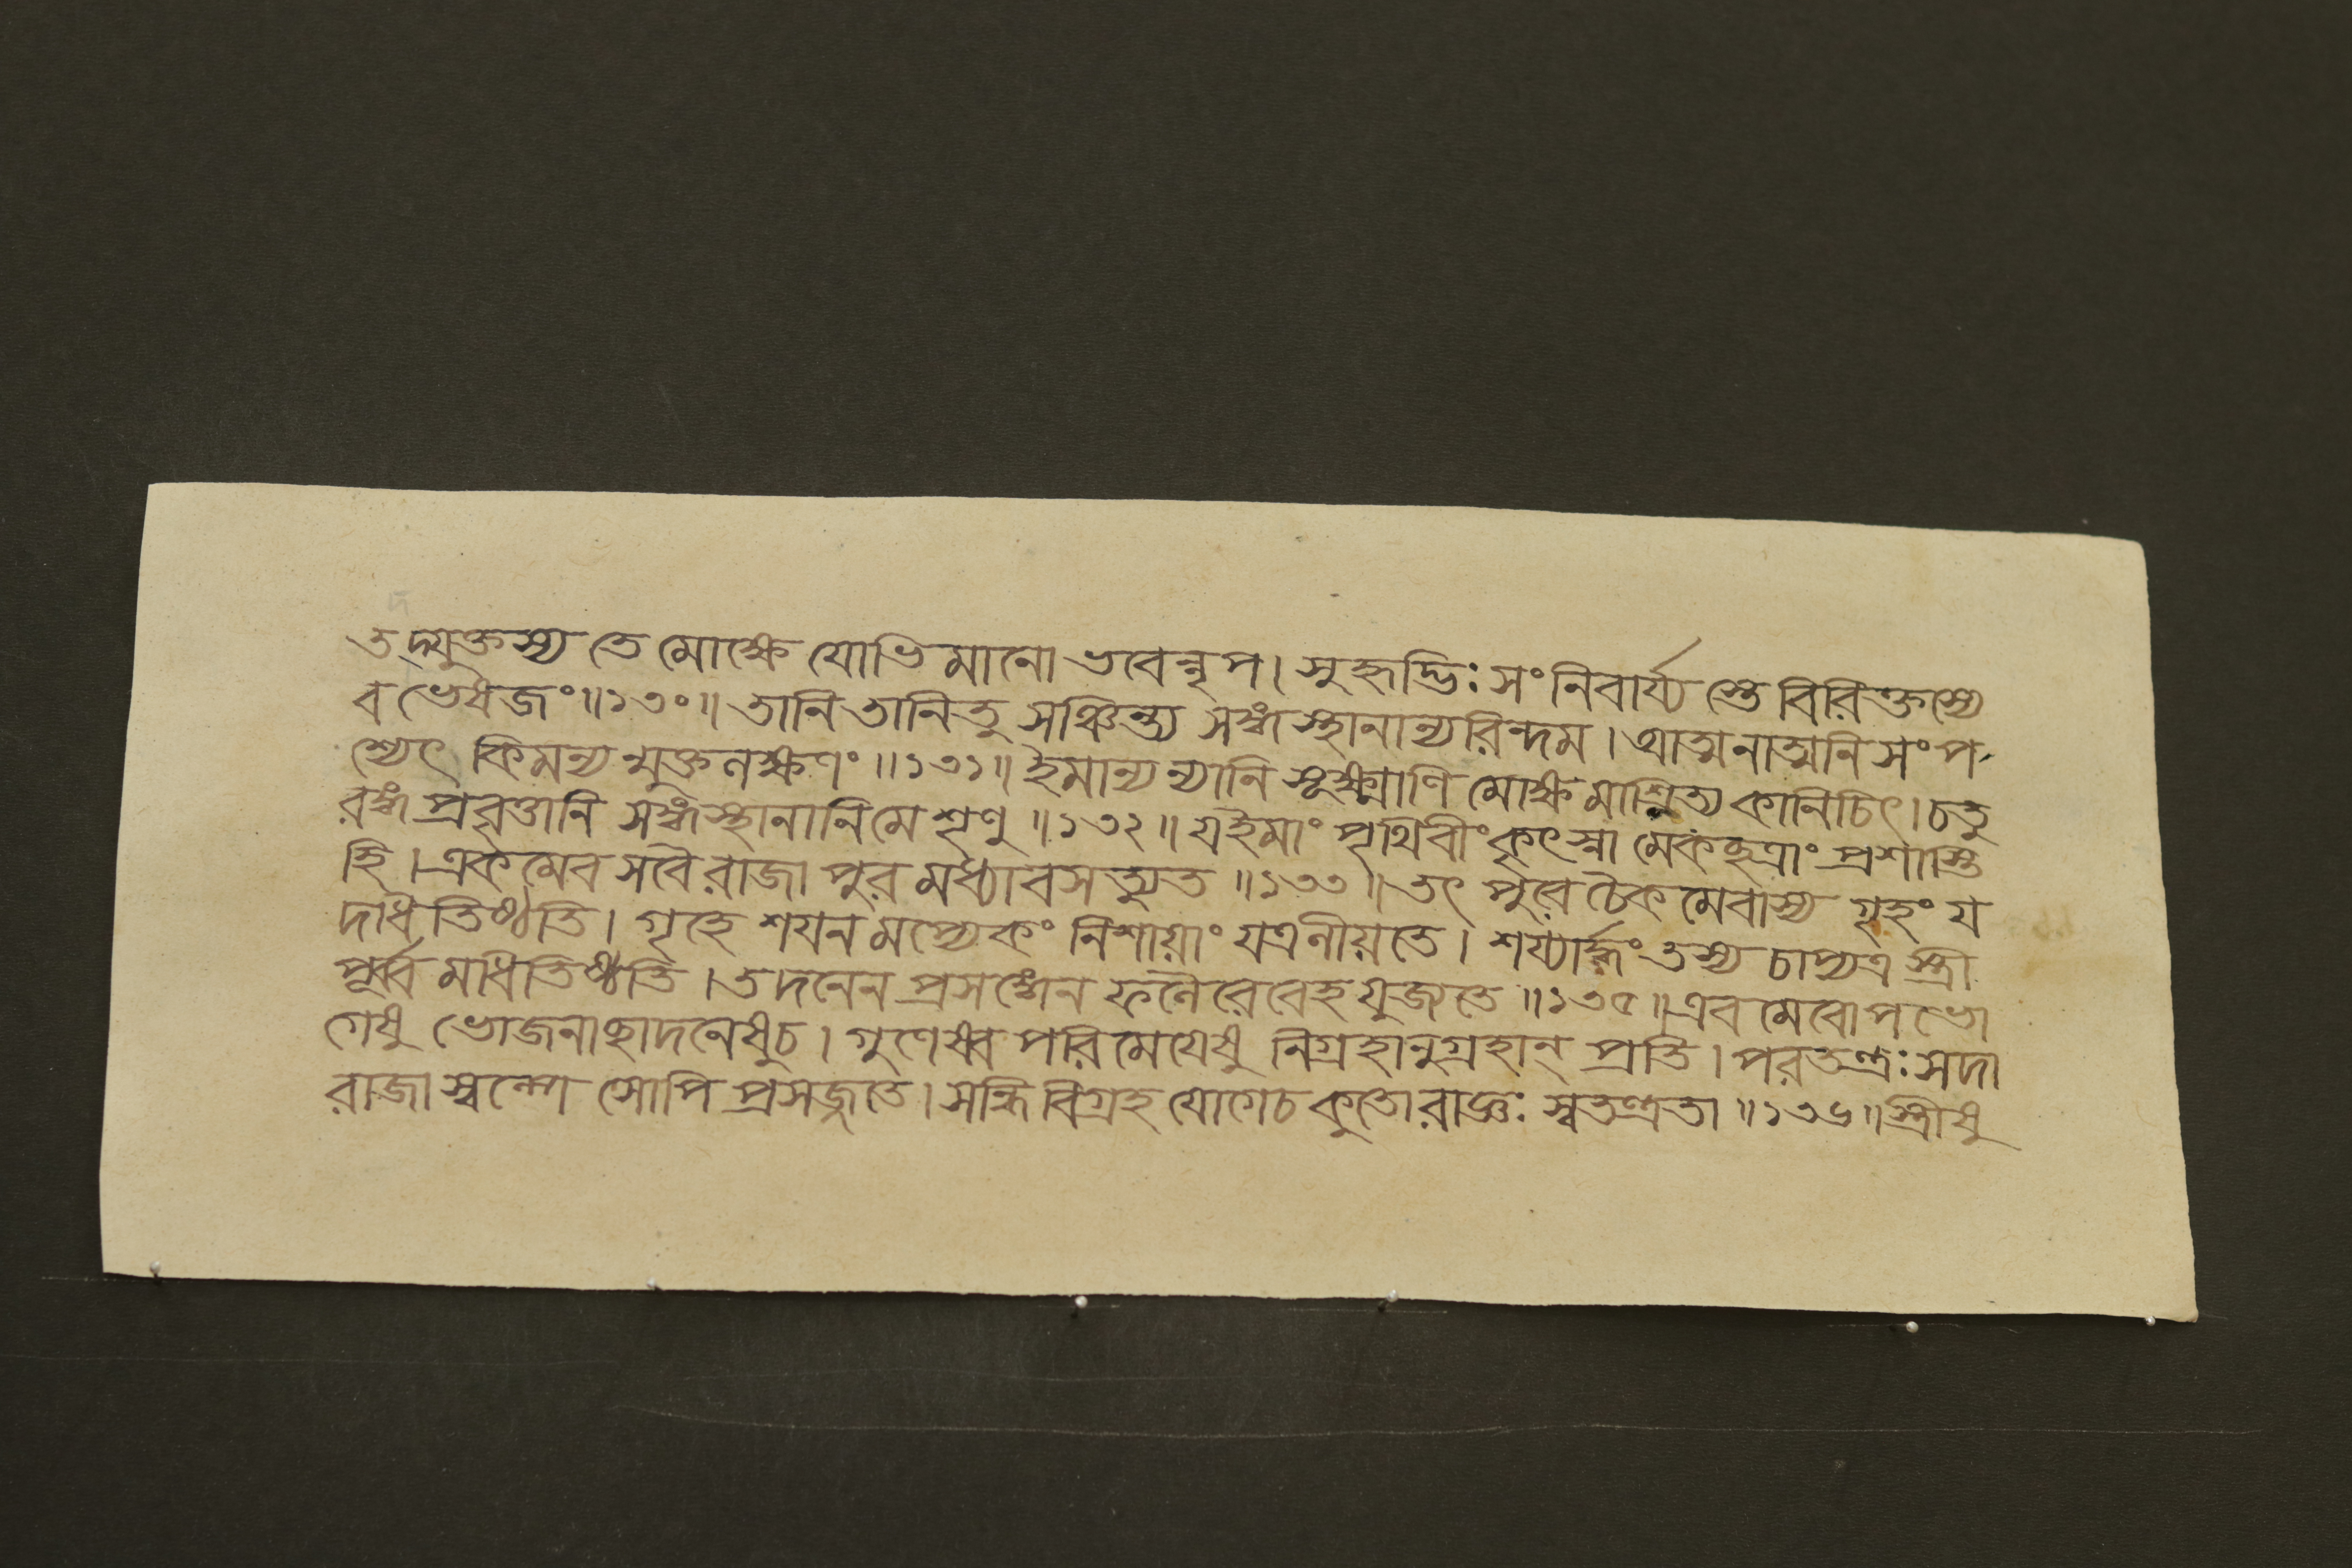 তদ্যুক্তস্য তে মোক্ষে যোভিমানো ভবেন্নৃপ। সুহৃদ্ভিঃ সংনিবার্য্য স্তে বিরিক্তস্যে
ব ভেষজং॥১৩০॥ তানি তানিতু সঞ্চিন্ত্য সঙ্গস্থানান্যরিন্দম। আত্মনাত্মনি সংপ
শ্যেৎ কিমন্য ন্মুক্তলক্ষণং॥১৩১॥ ইমান্যন্যানি সূক্ষ্মাণি মোক্ষমাশ্রিত্য কানিচিৎ। চতু
রঙ্গ প্রবৃত্তানি সঙ্গস্থানানি মে শৃণু॥১৩২॥ যইমাং পৃথিবীং কৃৎস্না মেকছত্রাং প্রশাস্তি
হি। একমেব সবৈ রাজা পুর মধ্যাবসত্যুত॥১৩৩॥ তৎ পুরে চৈকমেবাস্য গৃহং য
দধিতিষ্ঠতি। গৃহে শয়ন মপ্যেকং নিশায়াং যত্রলীয়তে। শয্যার্দ্ধং তস্য চাপ্যত্র স্ত্রী
পূর্ব্ব মধিতিষ্ঠতি। তদনেন প্রসঙ্গেন ফলৈরেবেহ যুজ্যতে॥১৩৫॥ এবমেবোপভো
গেষু ভোজনাছাদনেষুচ। গুণেষ্ব পরিমেয়েষু নিগ্রহানুগ্রহান্ প্রতি। পরতন্ত্রঃ সদা
রাজা স্বল্পে সোপি প্রসজ্জতে। সন্ধিবিগ্রহ যোগেচ কুতো রাজ্ঞঃ স্বতন্ত্রতা॥১৩৬॥ স্ত্রীষু